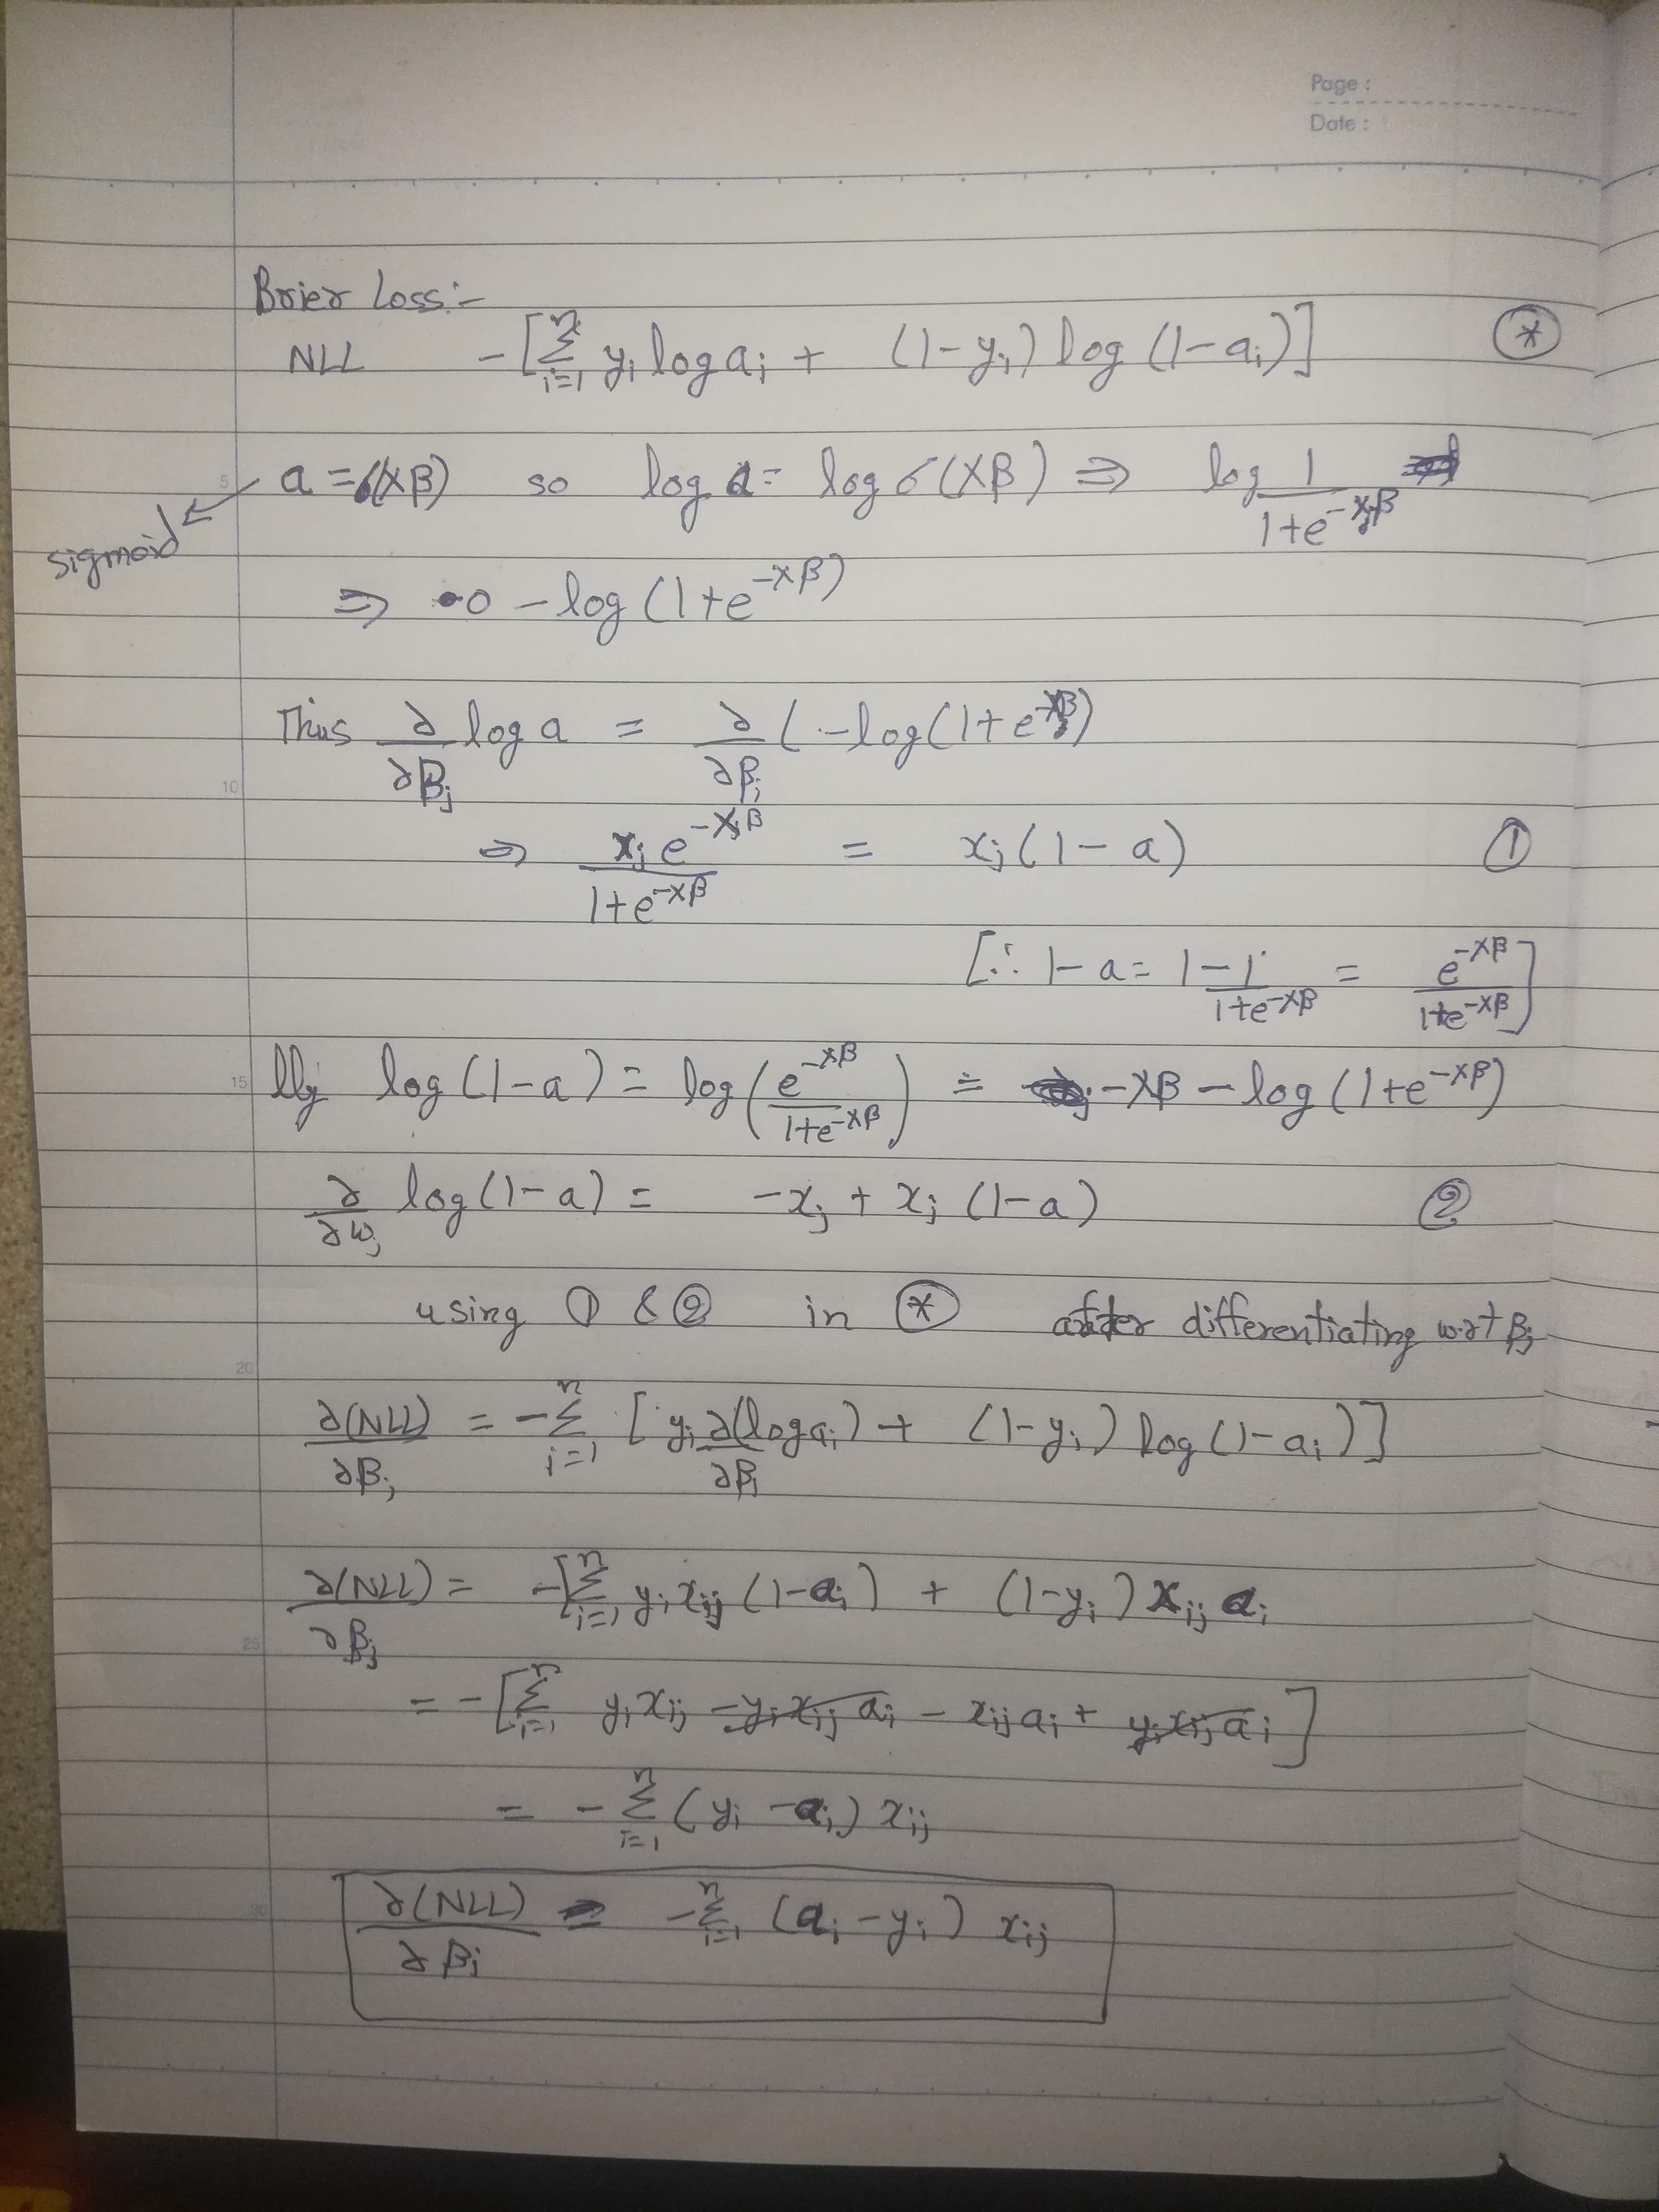 Page :
Date :
Brier Loss:-
NLL -[∑_{i=1}^{n} y_i log a_i + (1-y_i) log (1-a_i)] (*)
a = σ(Xβ) so log a = log σ(Xβ) ⇒ log 1/(1+e^{-Xβ})
sigmoid
⇒ 0 - log (1+e^{-Xβ})
Thus ∂/∂β_j log a = ∂/∂β_j (-log(1+e^{-Xβ})
⇒ x_j e^{-Xβ}/(1+e^{-Xβ}) = x_j (1-a) (1)
[∴ 1-a = 1 - 1/(1+e^{-Xβ}) = e^{-Xβ}/(1+e^{-Xβ})]
lly log (1-a) = log (e^{-Xβ}/(1+e^{-Xβ})) = -Xβ - log (1+e^{-Xβ})
∂/∂w_j log (1-a) = -x_j + x_j (1-a) (2)
using (1) & (2) in (*) after differentiating w.r.t β_j
∂(NLL)/∂β_j = -∑_{i=1}^{n} [y_i ∂(log a_i)/∂β_j + (1-y_i) log (1-a_i)]
∂(NLL)/∂β_j = -[∑_{i=1}^{n} y_i x_{ij} (1-a_i) + (1-y_i) x_{ij} a_i
= -[∑_{i=1}^{n} y_i x_{ij} - y_i x_{ij} a_i - x_{ij} a_i + y_i x_{ij} a_i]
= -∑_{i=1}^{n} (y_i - a_i) x_{ij}
∂(NLL)/∂β_j = -∑_{i=1}^{n} (a_i - y_i) x_{ij}
5
10
15
20
25
30